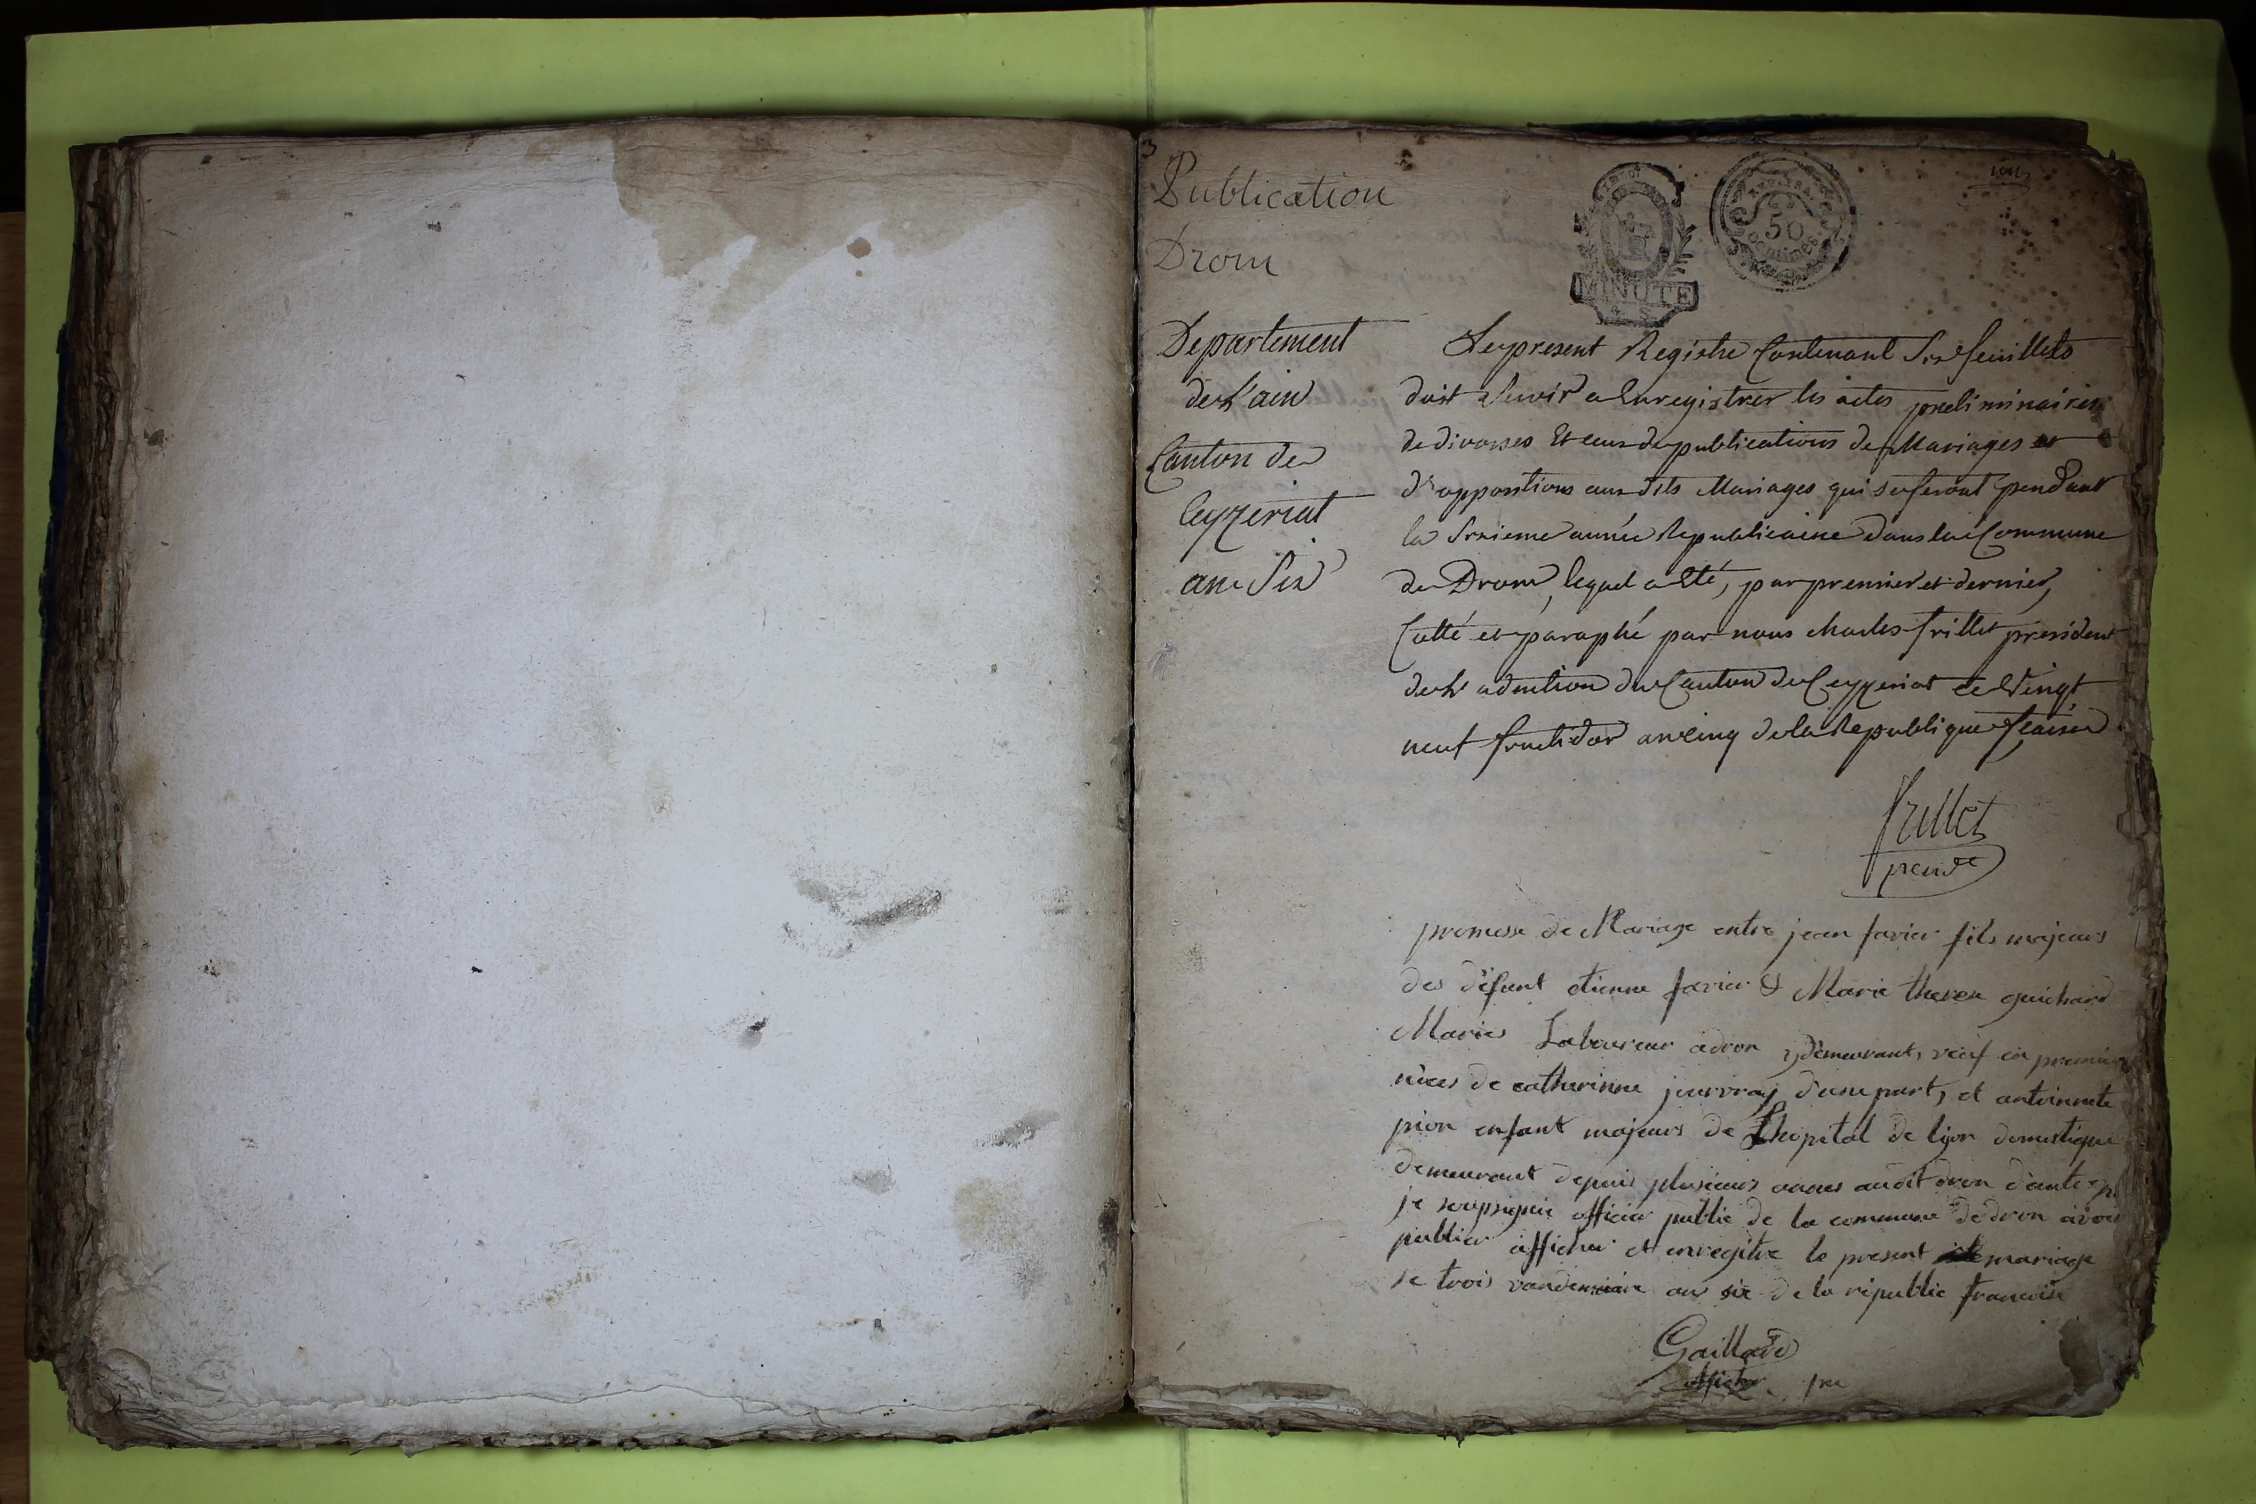 3
Publication
Drom
MINUTE
50
centimes
Departement
de L'ain
Canton de
Ceyzeriat
an Six
Le present Registre Contenant Six feuillets
doit Servir a Enregistrer les actes preliminaires
de divorses Et ceux de publications de Mariages et
d'oppositions aux dits Mariages qui se feront pendant
la Sixieme année Republicaine dans la Commune
de Drom, lequel a Eté, par premier et dernier,
Cotté et paraphé par nous charles frillet president
de L'admtion du Canton de Ceyzeriat ce Vingt
neuf fructidor an cinq de la Republique fcaise
frillet
presdt
promesse de Mariage entre jean favier fils majeurs
des défunt etienne favier & Marie therese guichard
Maries Laboureur a dron y demeurant, veuf en premier
nôces de catherinne jourvray d'une part, et antoinnete
pion enfant majeurs de Lhopital de lion domestique
demeurant depuis plusieurs annes au dit dron d'autre p
je soupsigniè officier public de la commune de dron avoir
publier afficher et enregitre le present mariage
le trois vandemiaire an six de la rèpublic francoise
Gaillard
officier